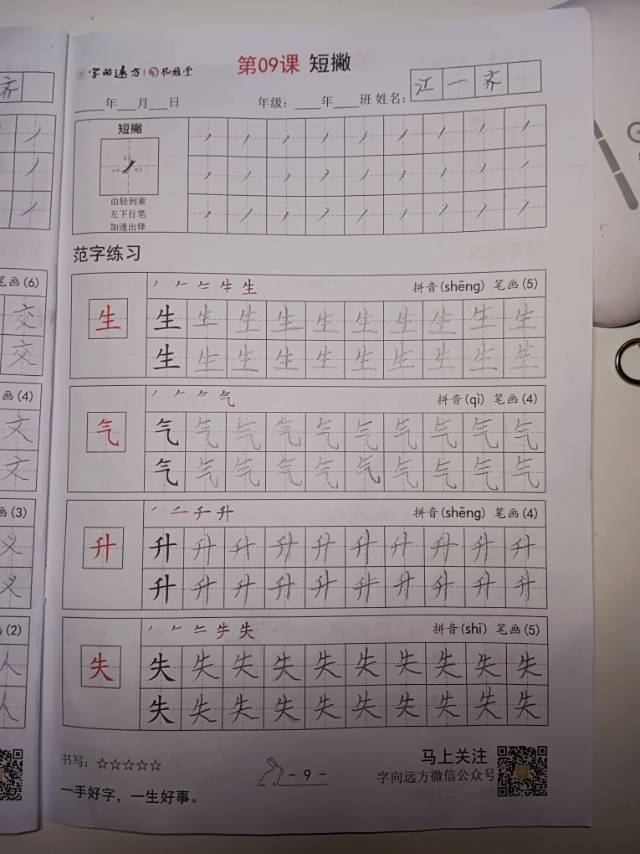 字向远方
第09课 短撇
___年___月___日 年级：___年___班 姓名： 江 一 齐
短撇
由轻到重
左下行笔
加速出锋
范字练习
生 拼音(shēng) 笔画(5)
生 生 生 生 生 生 生 生 生 生
生 生 生 生 生 生 生 生 生 生
气 拼音(qì) 笔画(4)
气 气 气 气 气 气 气 气 气 气
气 气 气 气 气 气 气 气 气 气
升 拼音(shēng) 笔画(4)
升 升 升 升 升 升 升 升 升 升
升 升 升 升 升 升 升 升 升 升
失 拼音(shī) 笔画(5)
失 失 失 失 失 失 失 失 失 失
失 失 失 失 失 失 失 失 失 失
书写：☆☆☆☆☆
一手好字，一生好事。
- 9 -
马上关注
字向远方微信公众号
齐
笔画(6)
交
交
画(4)
文
文
画(3)
义
义
(2)
人
人